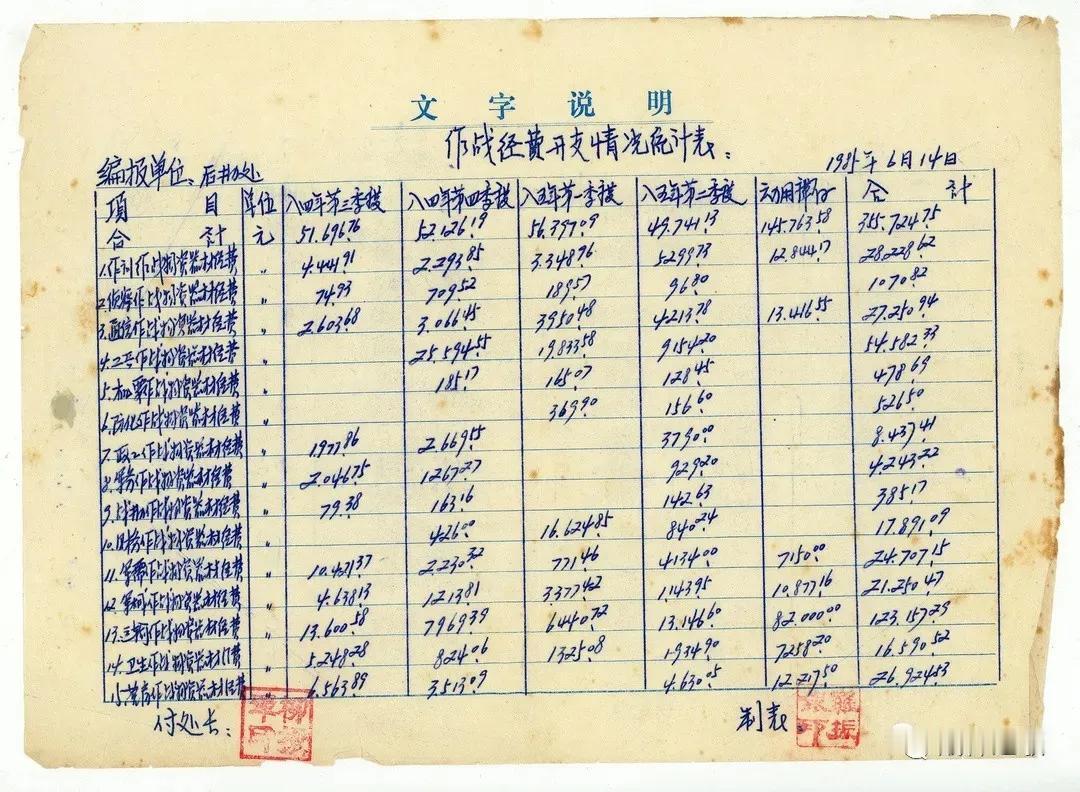 文字说明
作战经费开支情况统计表：
编报单位：后勤处 1985年6月14日
项目 单位 八四年第三季度 八四年第四季度 八五年第一季度 八五年第二季度 动用 合计
合计 元 51.69676 52.12619 56.39709 49.74113 145.76358 355.72475
1.作训作战物资器材经费 〃 4.44191 2.29385 3.34896 529973 12.84417 28.22862
2.侦察作战物资器材经费 〃 74.93 70952 18957 9680 107082
3.通信作战物资器材经费 〃 2.60368 3.06645 395048 421378 13.41655 27.25094
4.工兵作战物资器材经费 〃 25.59455 1983358 915420 54.58233
5.机要作战物资器材经费 〃 18517 16507 12845 47869
6.防化作战物资器材经费 〃 36990 15660 52650
7.政工作战物资器材经费 〃 197786 2.66955 379000 8.43741
8.军务作战物资器材经费 〃 2.04675 126727 92920 4.24322
9.作战物资器材经费 〃 79.38 16316 14263 38517
10.作战物资器材经费 〃 42600 16.62485 84024 17.89109
11.军需作战物资器材经费 〃 10.42137 2.23032 77146 413400 715000 24.70715
12.军械作战物资器材经费 〃 4.63813 121381 337742 1.14395 10.87716 21.25047
13.作战物资器材经费 〃 13.60058 796939 644072 13.14660 82.00000 123.15729
14.卫生作战物资器材经费 〃 5.24828 82406 132508 193490 725820 16.59052
15.营房作战物资器材经费 〃 6.56389 3.51309 4.63005 12.21750 26.92453
付处长： 制表